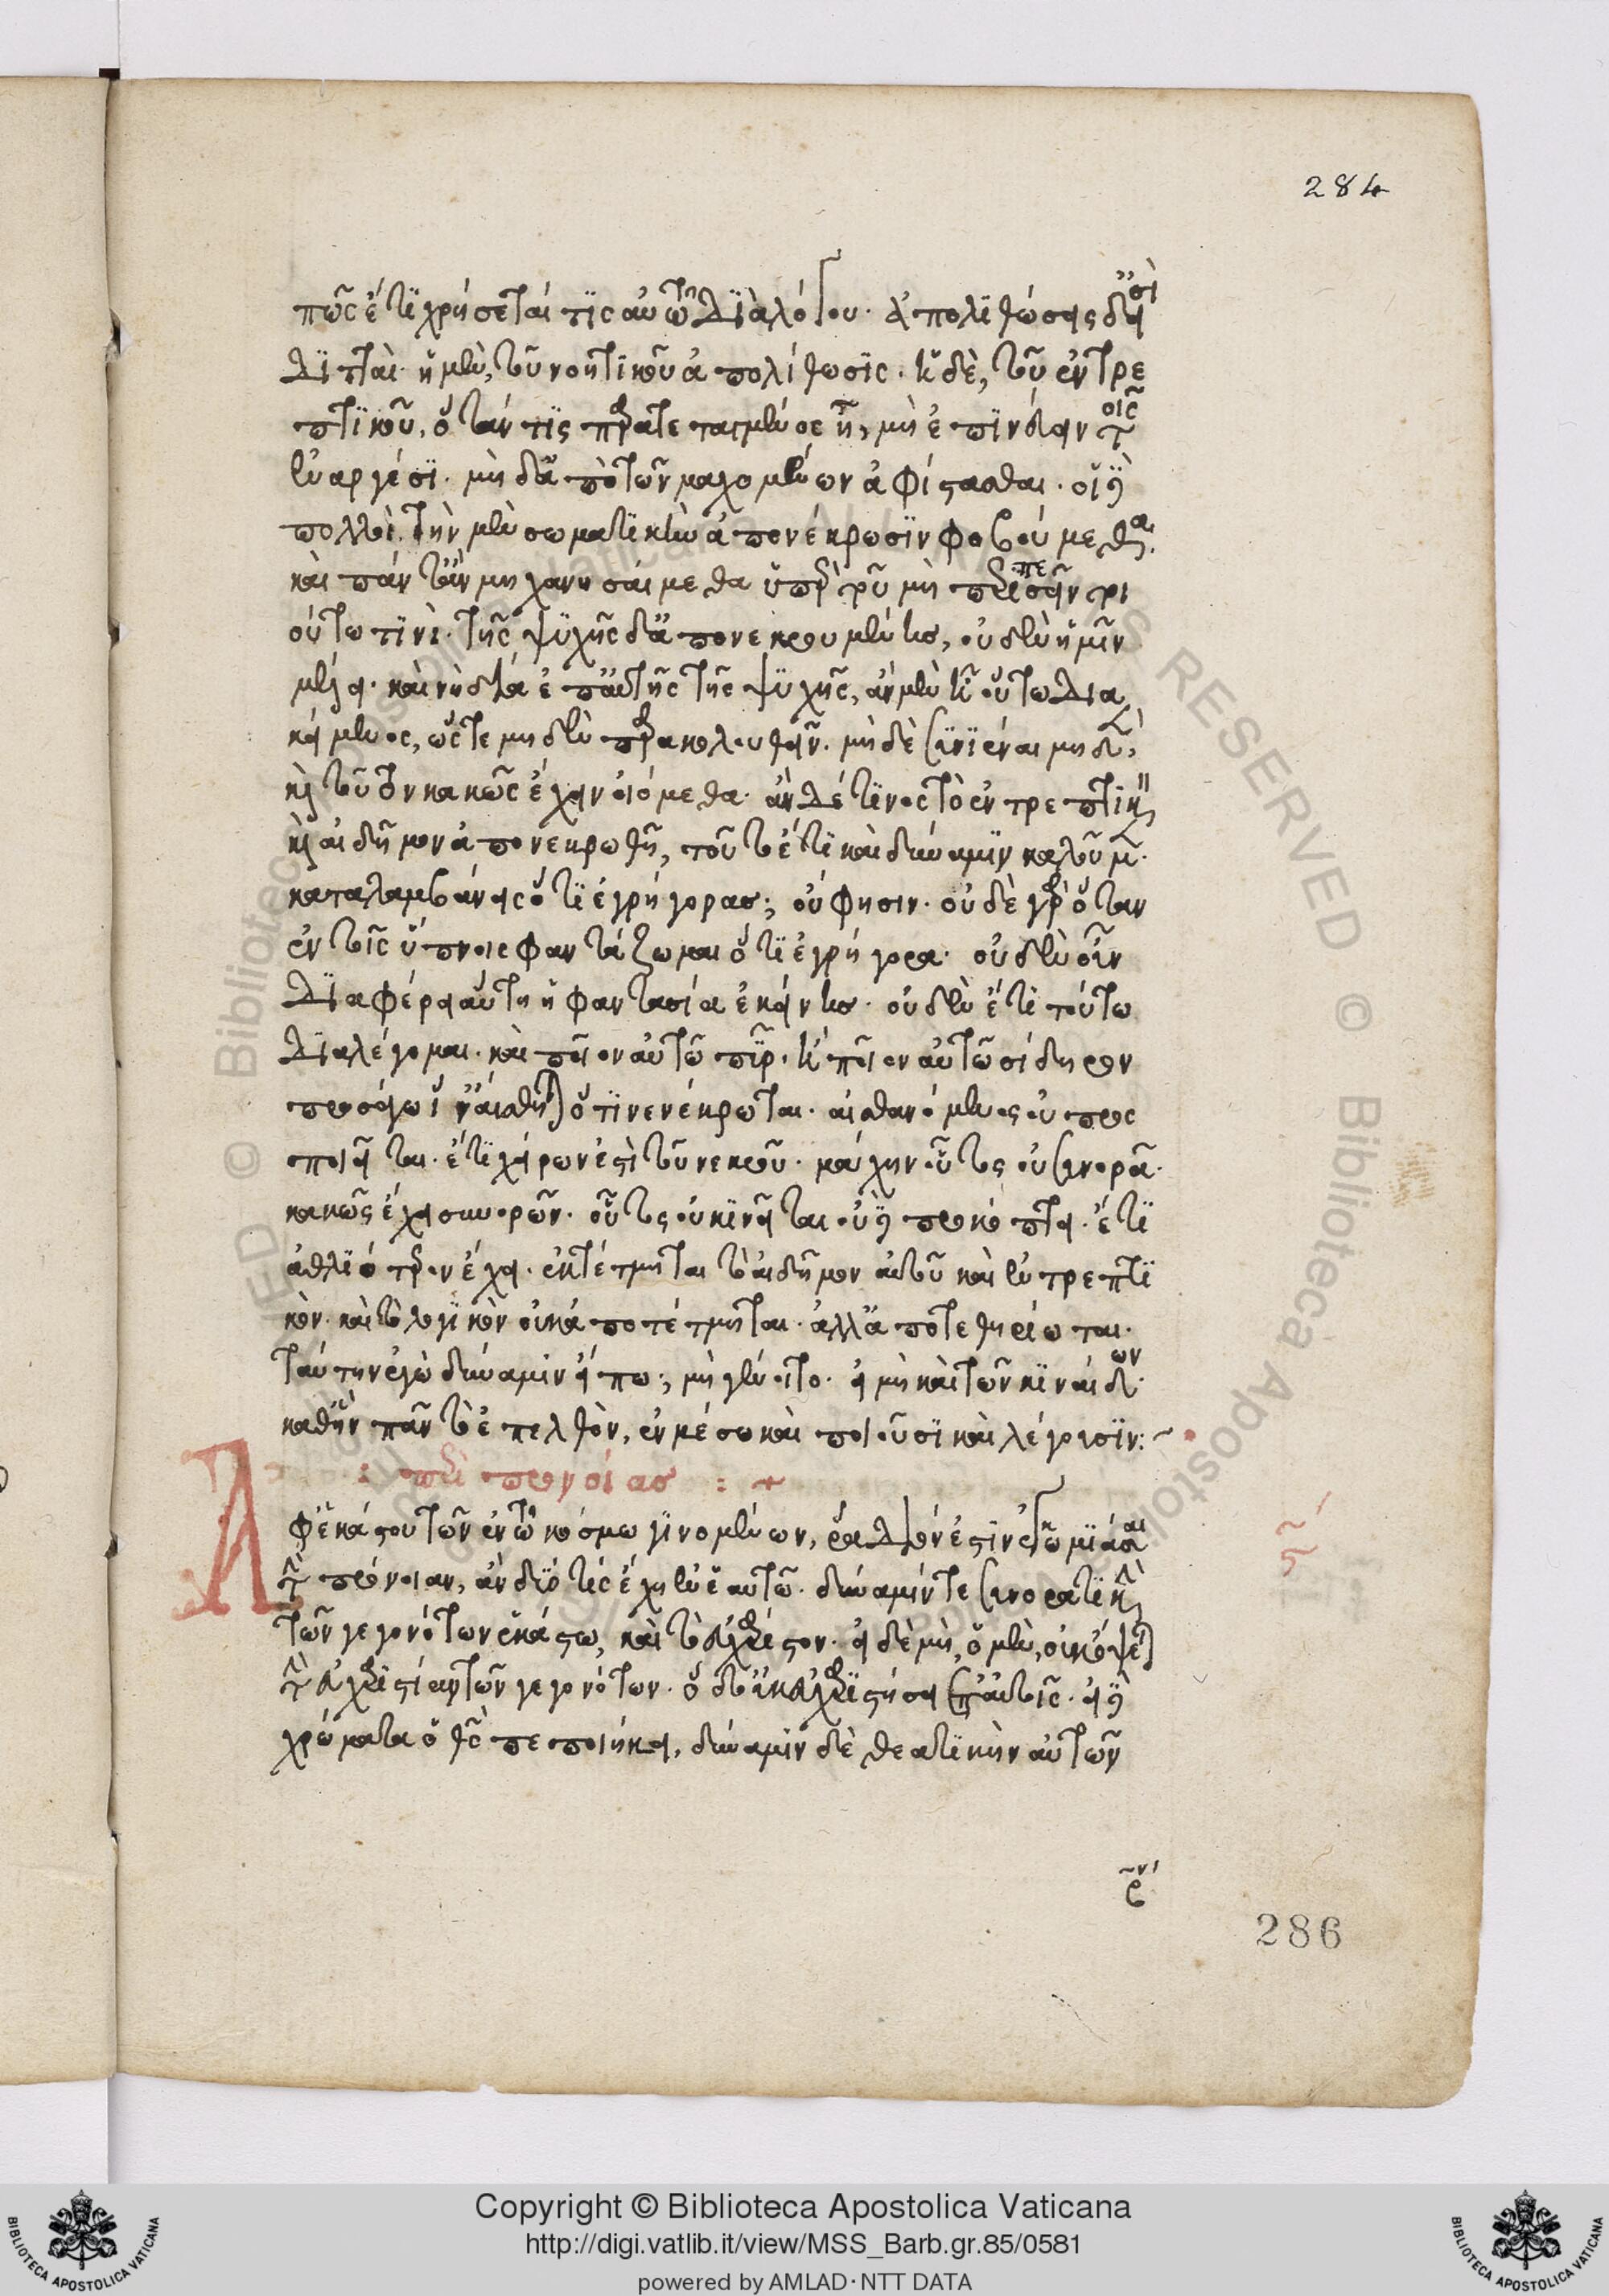 284
πῶς ἔτι χρήσεταί τις αὐτῷ διαλόγου· ἀπολιθώσεις δ' εἰσὶ
διτταί· ἡ μὲν, τοῦ νοητικοῦ ἀπολίθωσις· ἡ δὲ, τοῦ ἐντρε
πτικοῦ, ὅταν τις παρατεταγμένος ᾖ, μὴ ἐπινεύειν τοῖς
ἐναργέσι· μὴ δ' ἀπὸ τῶν μαχομένων ἀφίστασθαι· οἱ δὲ
πολλοὶ, τὴν μὲν σωματικὴν ἀπονέκρωσιν φοβούμεθα·
καὶ πάντ' ἂν μηχανησαίμεθα ὑπὲρ τοῦ μὴ περιπεσεῖν τοι
ούτω τινί· τῆς ψυχῆς δ' ἀπονεκρουμένης, οὐδὲν ἡμῖν
μέλει· καὶ νὴ δία ἐπ' αὐτῆς τῆς ψυχῆς, ἂν μὲν ᾖ οὕτω δια
κείμενος, ὥστε μηδὲν παρακολουθεῖν· μὴ δὲ συνϊέναι μηδὲν,
καὶ τοῦτον κακῶς ἔχειν οἰόμεθα· ἂν δέ τινος τὸ ἐντρεπτικὸν
καὶ αἰδῆμον ἀπονεκρωθῇ, τοῦτο ἔτι καὶ δύναμιν καλοῦμεν·
καταλαμβάνεις ὅτι ἐγρήγορας; οὔ φησιν· οὐδὲ γὰρ ὅταν
ἐν τοῖς ὕπνοις φαντάζωμαι ὅτι ἐγρήγορα· οὐδὲν οὖν
διαφέρει αὕτη ἡ φαντασία ἐκείνης· οὐδὲν ἔτι τούτω
διαλέγομαι· καὶ ποῖον αὐτῷ πῦρ· ἢ ποῖον αὐτῷ σίδηρον
προσάγω ἵν' αἴσθηται ὅτι νενέκρωται· αἰσθανόμενος οὐ προς
ποιεῖται· ἔτι χείρων ἐστὶ τοῦ νεκροῦ· μάχην οὗτος οὐ συνορᾷ·
κακῶς ἔχει συνορῶν· οὗτος οὐ κινεῖται οὐδὲ προκόπτει· ἔτι
ἀθλιώτερον ἔχει· ἐκτέτμηται τὸ αἰδῆμον αὐτοῦ καὶ ἐντρεπτι
κόν· καὶ τὸ λογικὸν οὐκ ἀποτέτμηται· ἀλλ' ἀποτεθηρίωται·
ταύτην ἐγὼ δύναμιν εἴπω; μὴ γένοιτο· εἰ μὴ καὶ τῶν κιναίδων·
καθ' ἣν πᾶν τὸ ἐπελθὸν, ἐν μέσω καὶ ποιοῦσι καὶ λέγουσιν:
: περὶ προνοίας : +
Ἀφ' ἑκάστου τῶν ἐν τῷ κόσμω γινομένων, ῥάδιόν ἐστιν ἐγκωμιάσαι
τὴν πρόνοιαν, ἂν δύο τις ἔχη ἐν ἑαυτῷ· δύναμίν τε συνορατικὴν
τῶν γεγονότων ἑκάστω, καὶ τὸ εὐχάριστον· εἰ δὲ μὴ, ὁ μὲν, οὐκ ὄψεται
τὴν εὐχρηστίαν τῶν γεγονότων· ὁ δ' οὐκ εὐχαριστήσει ἐπ' αὐτοῖς· εἰ δὲ
χρώματα ὁ θεὸς πεποιήκει, δύναμιν δὲ θεατικὴν αὐτῶν
286
Copyright © Biblioteca Apostolica Vaticana
http://digi.vatlib.it/view/MSS_Barb.gr.85/0581
powered by AMLAD·NTT DATA